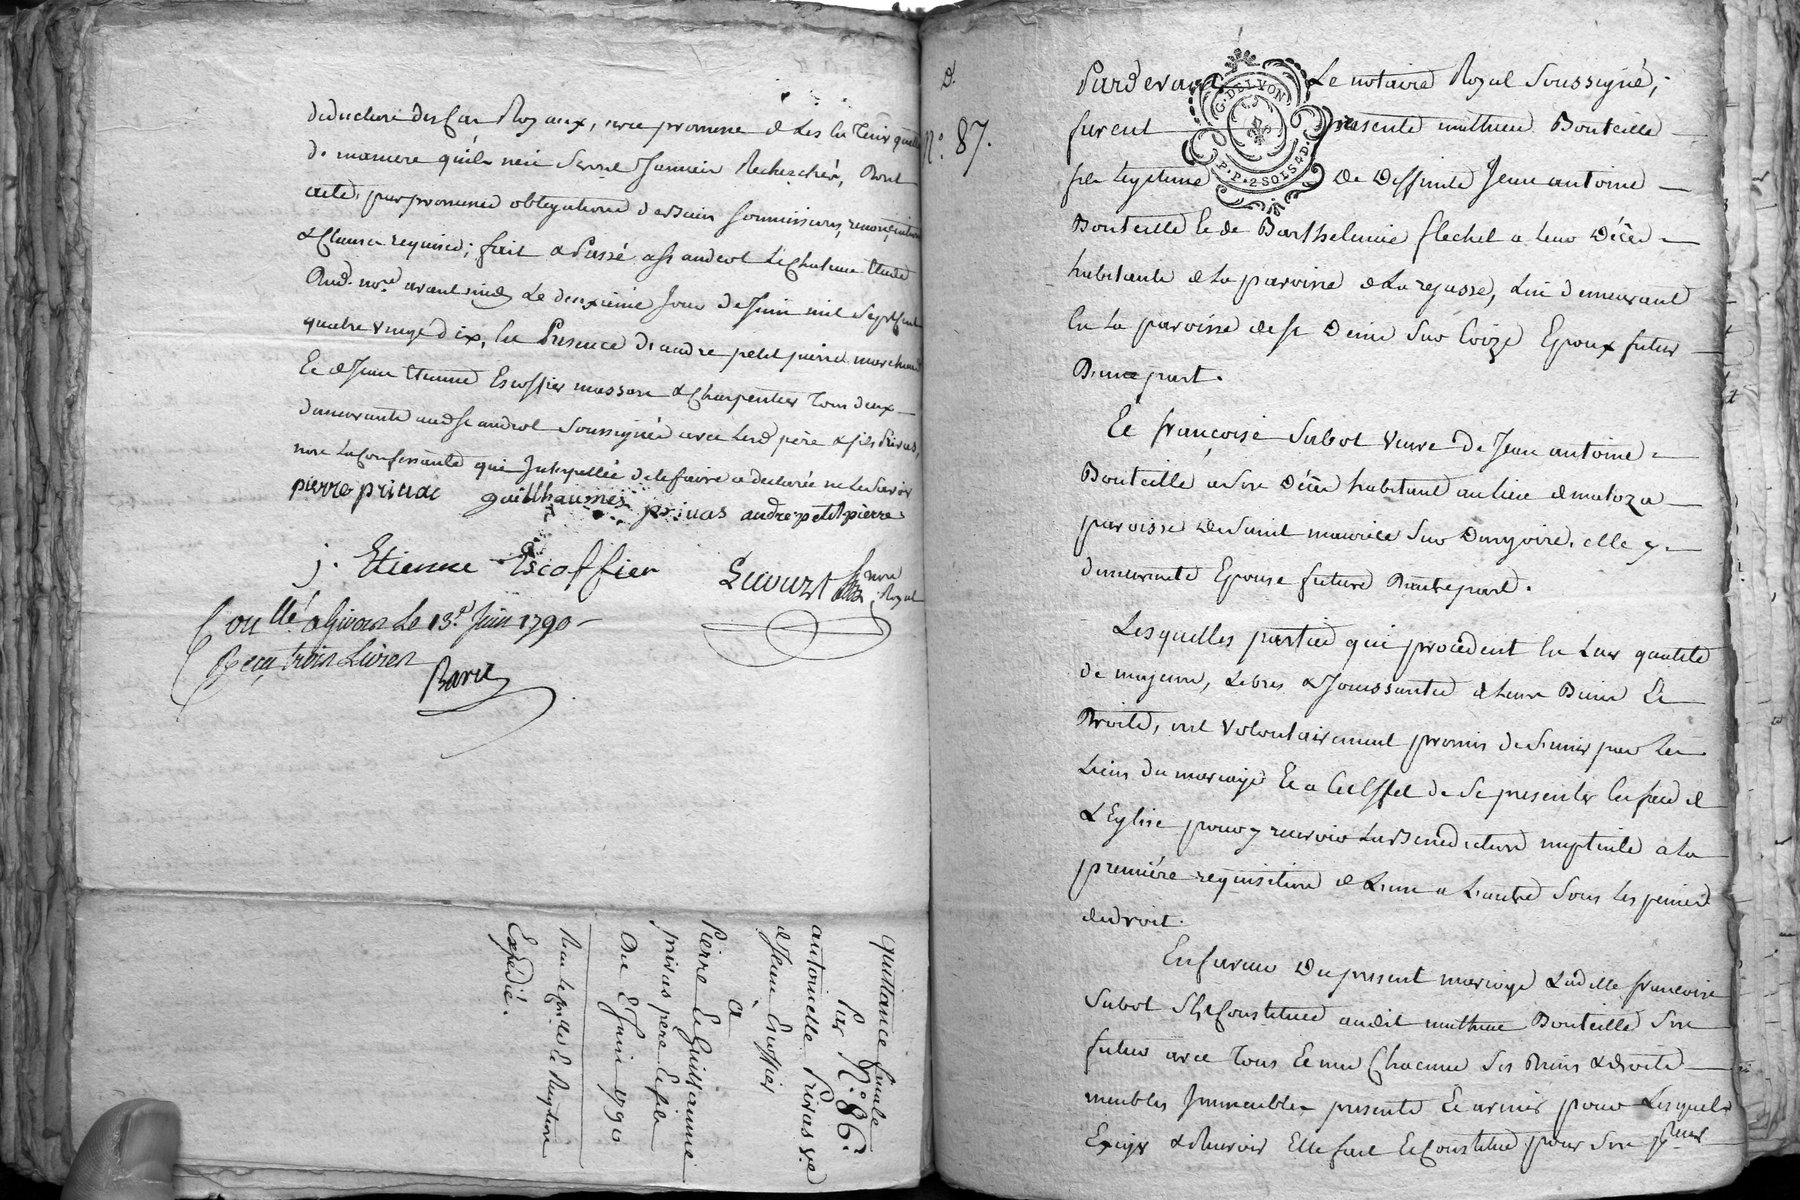 deductions des cas Royaux, avec promesse de les en tenir quitte
de maniere qu'ils n'en seront Jamais Recherchés, Dont
acte, par promesses obligations dessaisi soumissions, renonciations
& Clauses requises; fait & Passé a St andeol Le Chateau Etude
Dud. no.re avant midy Le deuxieme Jour de Juin mil Sept Cent
quatre vingt dix, En Presence d'andre petit pierre marchand
Et de Jean Etienne Escoffier masson & Charpentier Tous deux
demeurants aud St andeol Soussignés avec Lesd père & fils Privas,
non La Confessante qui Interpellée de le faire a declaré ne le savoir
pierre privas guillhaumes privas andre petit pierre
j. Etienne Escoffier
no.re Royal
Con.llé a Givors Le 13.e Juin 1790
Reçu trois Livres
Barie
quittance finale
Par N.o 86.
antoinette Privas v.e
de Jean Escoffier
à
Pierre Et Guillaume
privas pere Et fils
Du 2 Juin 1790
Expédié.
N.o 87.
G. DE LYON
P. P. 2 SOLS 4 D.
Pardevant Le notaire Royal Soussigné;
furent presents mathieu Bouteille
fils legitime De Deffunts Jean antoine
Bouteille Et de Barthelemie flechet a leur Décès
habitants de la paroisse de Larajasse, Lui demeurant
En La paroisse de St Denis Sur Coize Epoux futur
D'une part.
Et françoise Sabot Veuve De Jean antoine
Bouteille a son Décès habitant au lieu de matoza
paroisse De Saint maurice Sur Dargoire, elle y
demeurante Epouse future D'autre part.
Lesquelles parties qui procedent En Leur qualité
de majeurs, Libres & Jouissants de Leurs Biens Et
Droits, ont Volontairement promis de S'unir par Les
Liens du mariage Et a Cet Effet de Se presenter En face de
L'Eglise pour y recevoir La Benediction nuptiale a la
première requisition de L'un a L'autre Sous les peines
de droit.
En faveur Du present mariage Ladite françoise
Sabot S'est Constituée audit mathieu Bouteille Son
futur avec Tous Et un Chacuns Ses Biens & droits
meubles Immeubles presents Et avenir pour Lesquels
Exiger & Recevoir Elle fait Et Constitue pour Son